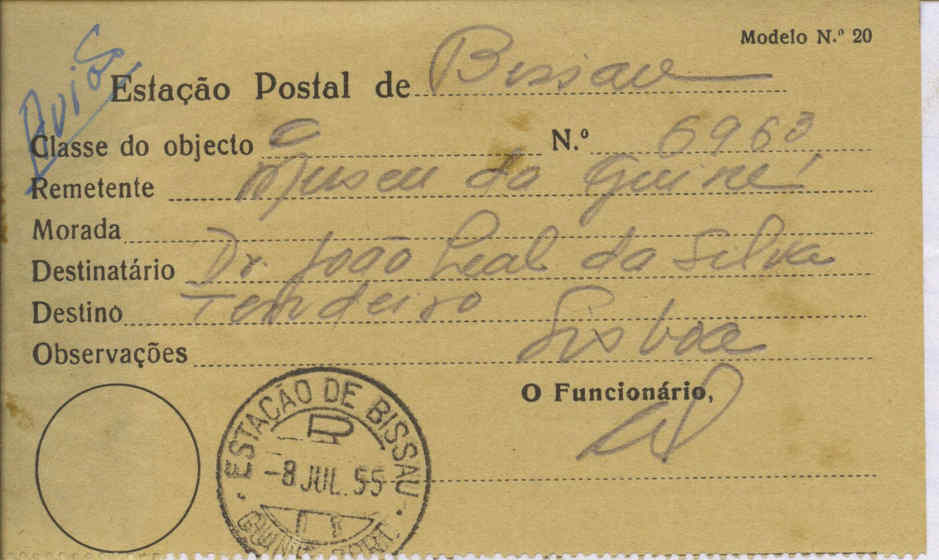 Modelo N.º 20
Aviões
Estação Postal de Bissau
Classe do objecto C N.º 6963
Remetente Museu da Guiné
Morada
Destinatário Dr. João Leal da Silva
Destino Tendeiro
Observações Lisboa
O Funcionário,
ESTAÇÃO DE BISSAU
R
-8 JUL. 55
GUINÉ PORT.